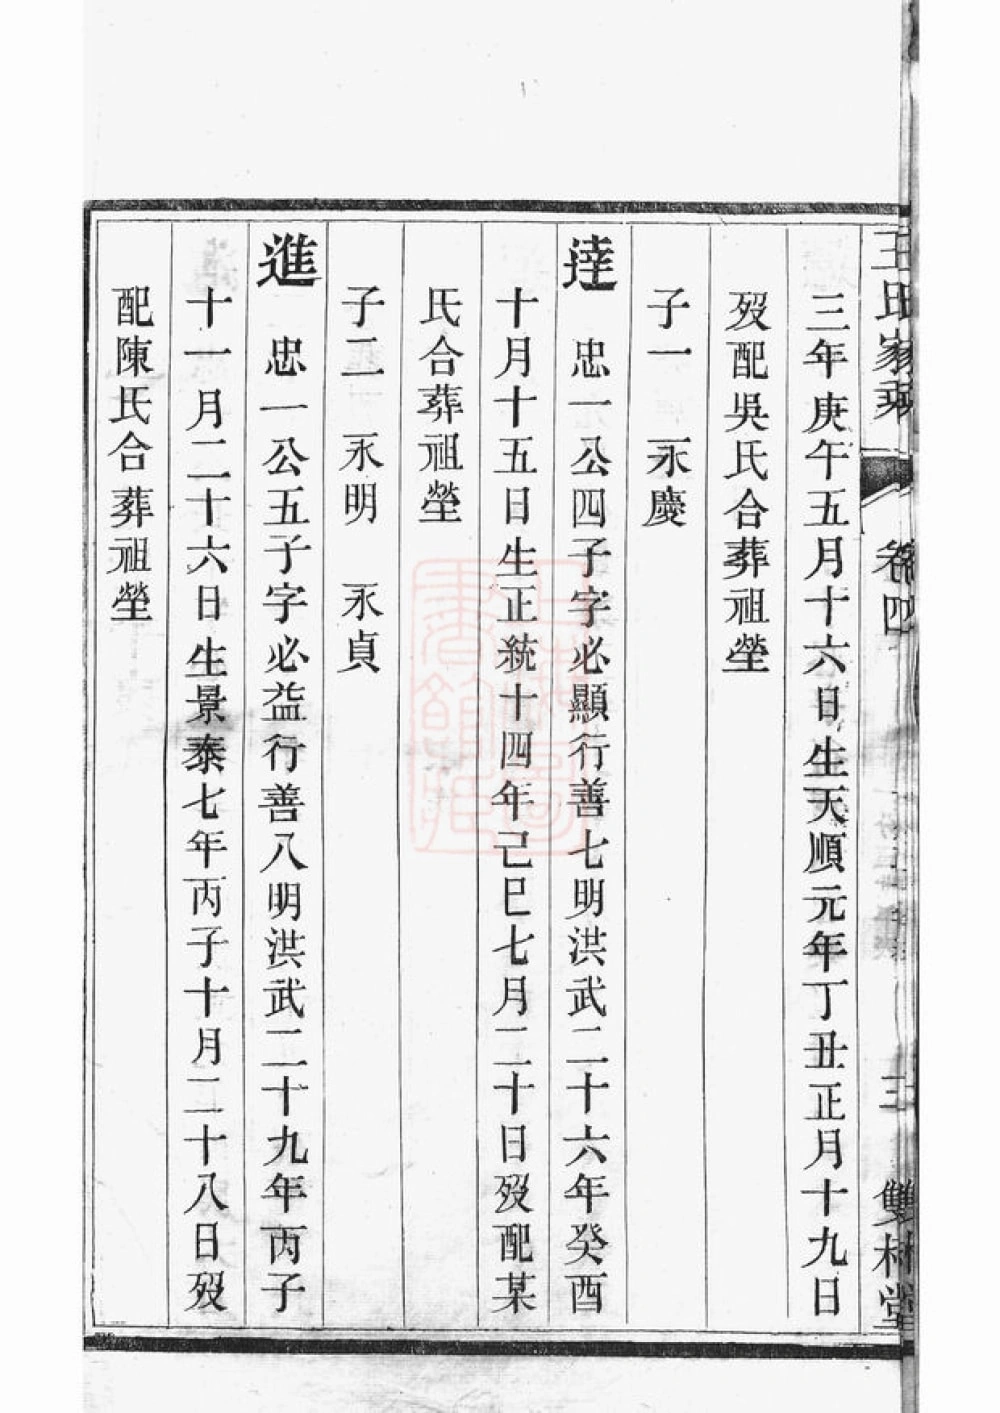 王氏家乘 卷四 三 雙林堂
三年庚午五月十六日生天順元年丁丑正月十九日
歿配吳氏合葬祖塋
子一 永慶
逹 忠一公四子字必顯行善七明洪武二十六年癸酉
十月十五日生正統十四年己巳七月二十日歿配某
氏合葬祖塋
子二 永明 永貞
進 忠一公五子字必益行善八明洪武二十九年丙子
十一月二十六日生景泰七年丙子十月二十八日歿
配陳氏合葬祖塋
上海圖書館藏